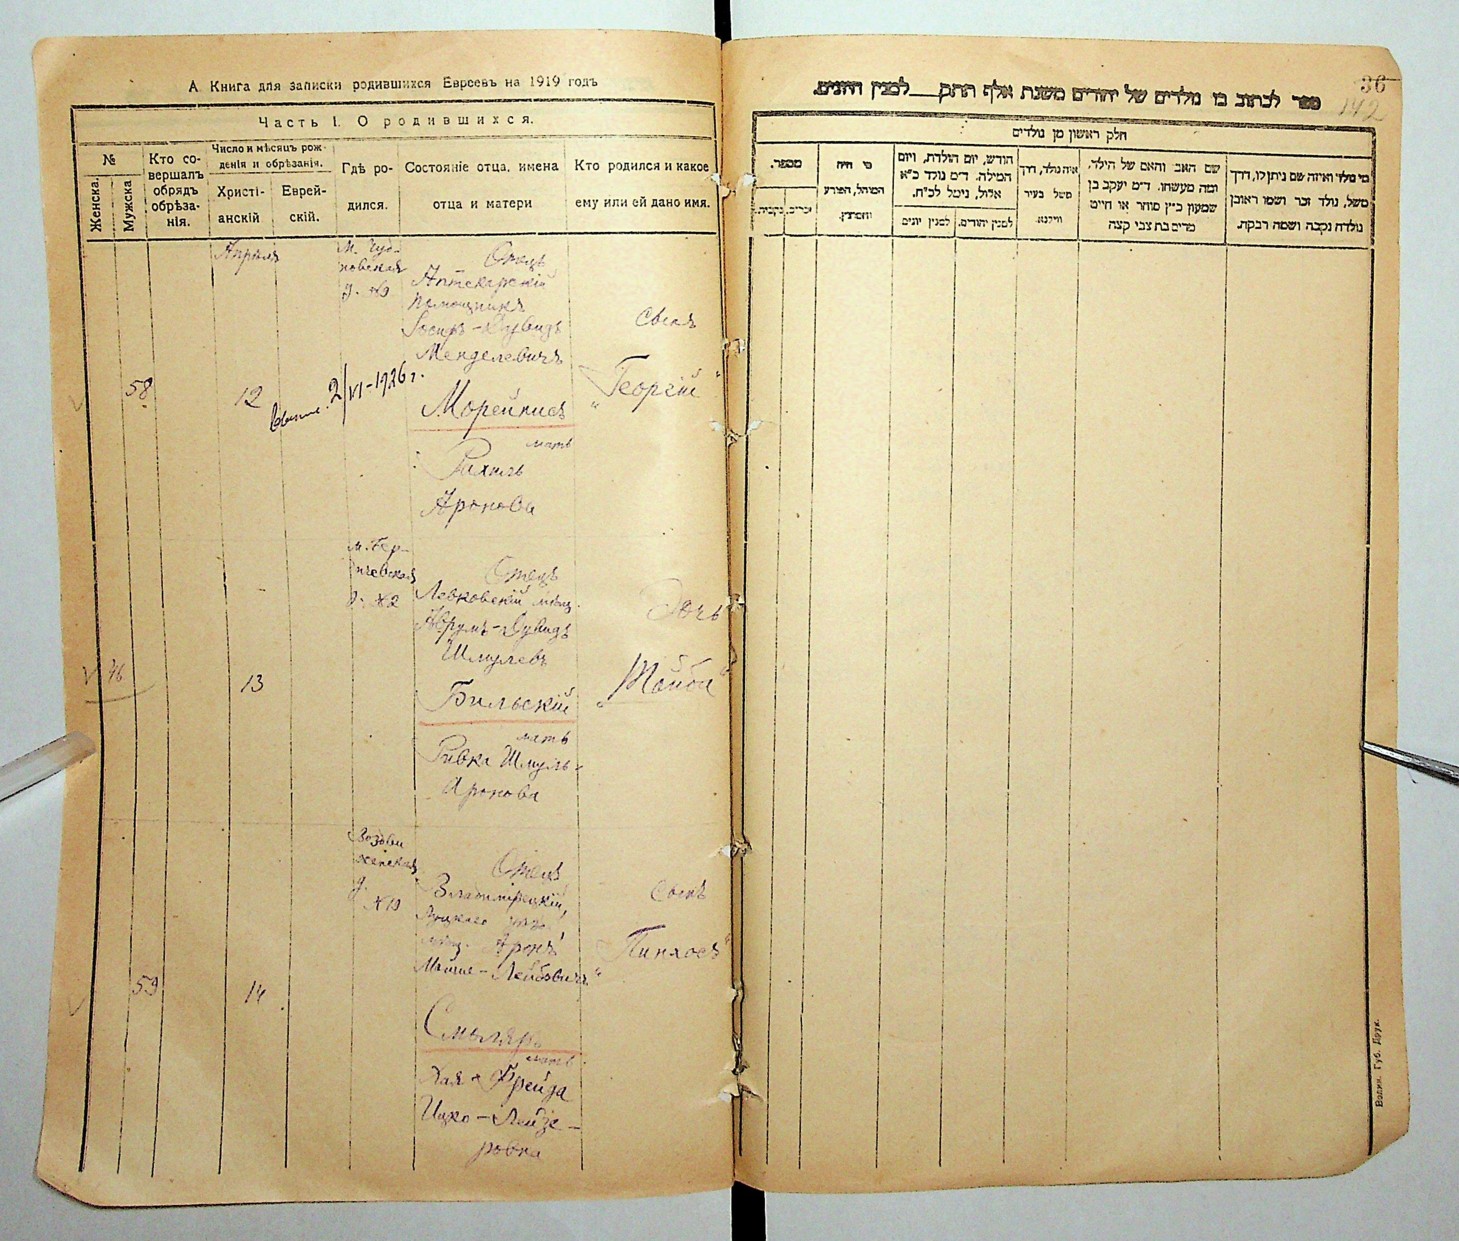 А. Книга для записки родившихся Евреевъ на 1919 годъ
Часть I. О родившихся.
№
Женска.
Мужска
Кто со-
вершалъ
обрядъ
обрѣза-
нія.
Число и мѣсяцъ рож-
денія и обрѣзанія.
Христі-
анскій
Еврей-
скій.
Гдѣ ро-
дился.
Состояніе отца, имена
отца и матери
Кто родился и какое
ему или ей дано имя.
58
Апрѣля
12
2/VI-1926 г.
М. Чуд-
новская
д. №9
Отецъ
Аптекарскій
Помощникъ
Іосифъ-Дувидъ
Менделевичъ
Морейнисъ
мать
Рахиль
Аронова
Сынъ
"Георгій"
46
13
м. Бер-
ичевская
д. №2
Отецъ
Левковскій мѣщ.
Аврумъ-Дувидъ
Шмулевъ
Бильскій
мать
Ривка Шмуль-
Аронова
Дочь
"Тойба"
59
14
Воздви
женская
д.
№19
Отецъ
Владимірецкій,
Луцкаго
мѣщ. Аронъ
Мойше-Лейбовичъ
Смыляръ
мать
Хая-Фрейда
Ицко-Лейзе-
ровна
Сынъ
"Пинхосъ"
36
142
ספר לכתוב בו נולדים של יהודים משנת אלף תתק__ למנין היונים.
חלק ראשון מן נולדים
מספר.
זכרים.
נקבות.
מי היה
המוהל, הפורע
והמוצץ.
חודש, יום הולדת, ויום
המילה. ד״מ נולד כ״א
אלול, נימול לכ״ח.
למנין יונים
למנין יהודים.
איה נולד, דרך
משל בעיר
ווילנא.
שם האב והאם של הילד.
ומה מעשהו. ד״מ יעקב בן
שמעון כ״ץ סוחר או חייט
מרים בת צבי קצה
מי נולד ואיזה שם ניתן לו, דרך
משל, נולד זכר ושמו ראובן
נולדה נקבה ושמה רבקה.
Волын. Губ. Друк.